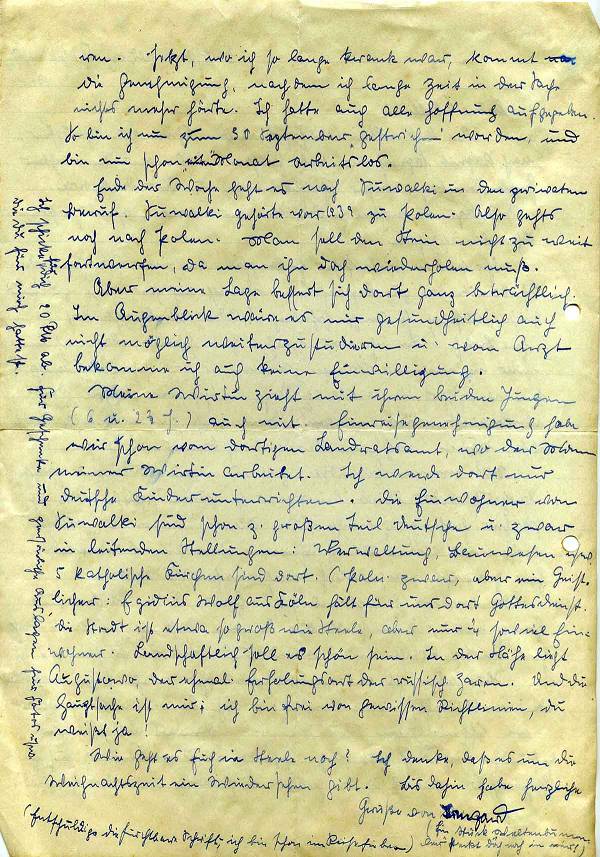 ren. Jetzt, wo ich so lange krank war, kommt
die Genehmigung, nachdem ich lange Zeit in der Sache
nichts mehr hörte. Ich hatte auch alle Hoffnung aufgegeben.
So bin ich nun zum 30 September „gestrichen“ worden, und
bin nun schon einen Monat arbeitslos.
Ende der Woche geht es nach Suwalki in den privaten
Beruf. Suwalki gehörte vor 1939 zu Polen. Also gehts
noch nach Polen. Man soll den Stein nicht zu weit
fortwerfen, da man ihn doch wiederholen muß.
Aber meine Lage bessert sich dort ganz beträchtlich.
Im Augenblick wäre es mir gesundheitlich auch
nicht möglich weiterzustudieren u. vom Arzt
bekomme ich auch keine Einwilligung.
Meine Wirtin zieht mit ihren beiden Jungen
(6 u. 2½ J.) auch mit. Einreisegenehmigung habe
wir schon vom dortigen Landratsamt, wo der Mann
meiner Wirtin arbeitet. Ich werde dort nur
deutsche Kinder unterrichten. Die Einwohner von
Suwalki sind schon z. großen Teil Deutsche u. zwar
in leitenden Stellungen: Verwaltung, Bauwesen usw.
2 katholische Kirchen sind dort. (Poln. zwar, aber ein Geist-
licher: Egidius Wolf aus Köln hält für uns dort Gottesdienst.
Die Stadt ist etwa so groß wie Steele, aber nur ¼ soviel Ein-
wohner. Landschaftlich soll es schön sein. In der Nähe liegt
Augustowo, der ehmal. Erholungsort der russisch Zaren. Und die
Hauptsache ist mir: ich bin frei von gewissen Richtlinien, du
weißt ja!
Wie geht es Euch in Steele noch? Ich denke, daß es um die
Weihnachtszeit ein Wiedersehen gibt. Bis dahin habe herzliche
Grüße von Irmgard
(Entschuldige die furchtbare Schrift, ich bin schon im Reisefieber)
(Ein Stück
Ich schicke 20 RM ab. Für Geschenke und persönliche Auslagen für Peter usw.
die Du für mich hattest.